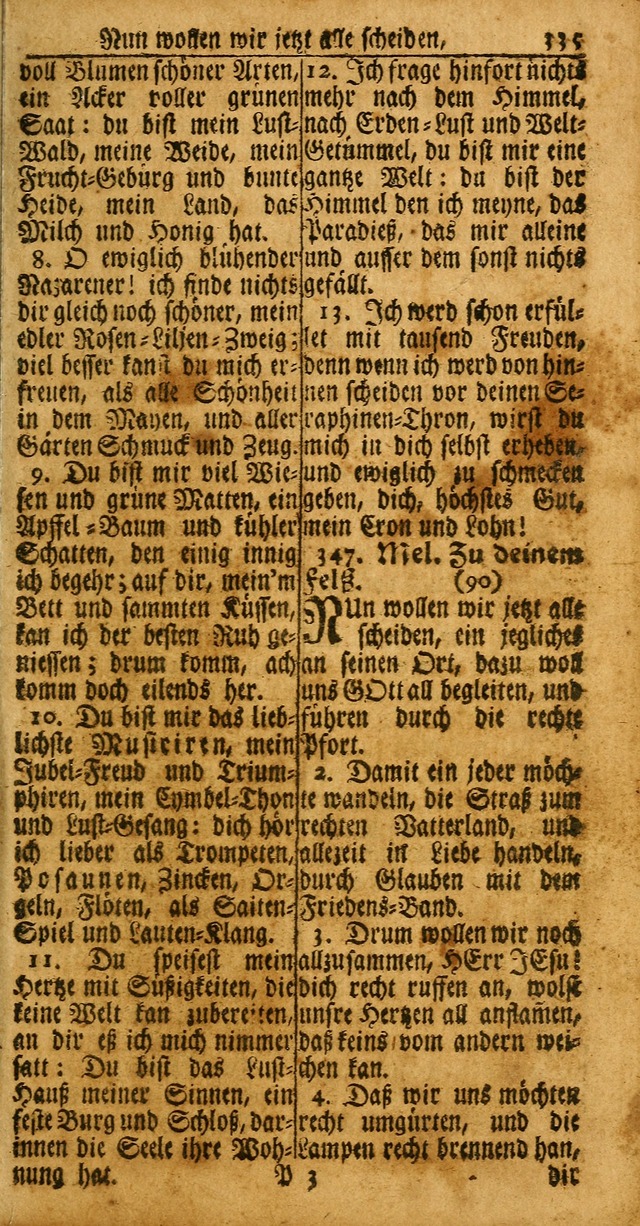 Nun wollen wir jetzt alle scheiden, 335
voll Blumen schöner Arten,
ein Acker voller grünen
Saat: du bist mein Lust-
Wald, meine Weide, mein
Frucht-Gebürg und bunte
Heide, mein Land, das
Milch und Honig hat.
8. O ewiglich blühender
Nazarener! ich finde nichts
dir gleich noch schöner, mein
edler Rosen-Liljen-Zweig;
viel besser kanst du mich er-
freuen, als alle Schönheit
in dem Mayen, und aller
Gärten Schmuck und Zeug.
9. Du bist mir viel Wie-
sen und grüne Matten, ein
Apffel-Baum und kühler
Schatten, den einig innig
ich begehr; auf dir, mein'm
Bett und sammten Küssen,
kan ich der besten Ruh ge-
niessen; drum komm, ach
komm doch eilends her.
10. Du bist mir das lieb-
lichste Musiciren, mein
Jubel-Freud und Trium-
phiren, mein Cymbel-Thon
und Lust-Gesang: dich hör
ich lieber als Trompeten,
Posaunen, Zincken, Or-
geln, Flöten, als Saiten-
Spiel und Lauten-Klang.
11. Du speisest mein
Hertze mit Süßigkeiten, die
keine Welt kan zubereiten,
an dir eß ich mich nimmer
satt: Du bist das Lust-
Hauß meiner Sinnen, ein
feste Burg und Schloß, dar-
innen die Seele ihre Woh-
nung hat.
12. Ich frage hinfort nichts
mehr nach dem Himmel,
nach Erden-Lust und Welt-
Getümmel, du bist mir eine
gantze Welt: du bist der
Himmel den ich meyne, das
Paradieß, das mir alleine
und ausser dem sonst nichts
gefällt.
13. Ich werd schon erfül-
let mit tausend Freuden,
denn wenn ich werd von hin-
nen scheiden vor deinen Se-
raphinen-Thron, wirst du
mich in dich selbst erheben,
und ewiglich zu schmecken
geben, dich, höchstes Gut,
mein Cron und Lohn!
347. Mel. Zu deinem
Felß. (90)
NUn wollen wir jetzt alle
scheiden, ein jegliches
an seinen Ort, dazu woll
uns GOtt all begleiten, und
führen durch die rechte
Pfort.
2. Damit ein jeder möch-
te wandeln, die Straß zum
rechten Vatterland, und
allezeit in Liebe handeln,
durch Glauben mit dem
Friedens-Band.
3. Drum wollen wir noch
allzusammen, HErr JEsu!
dich recht ruffen an, wolst
unsre Hertzen all anstam̃en,
daß keins vom andern wei-
chen kan.
4. Daß wir uns möchten
recht umgürten, und die
Lampen recht brennend han,
P 3 dir